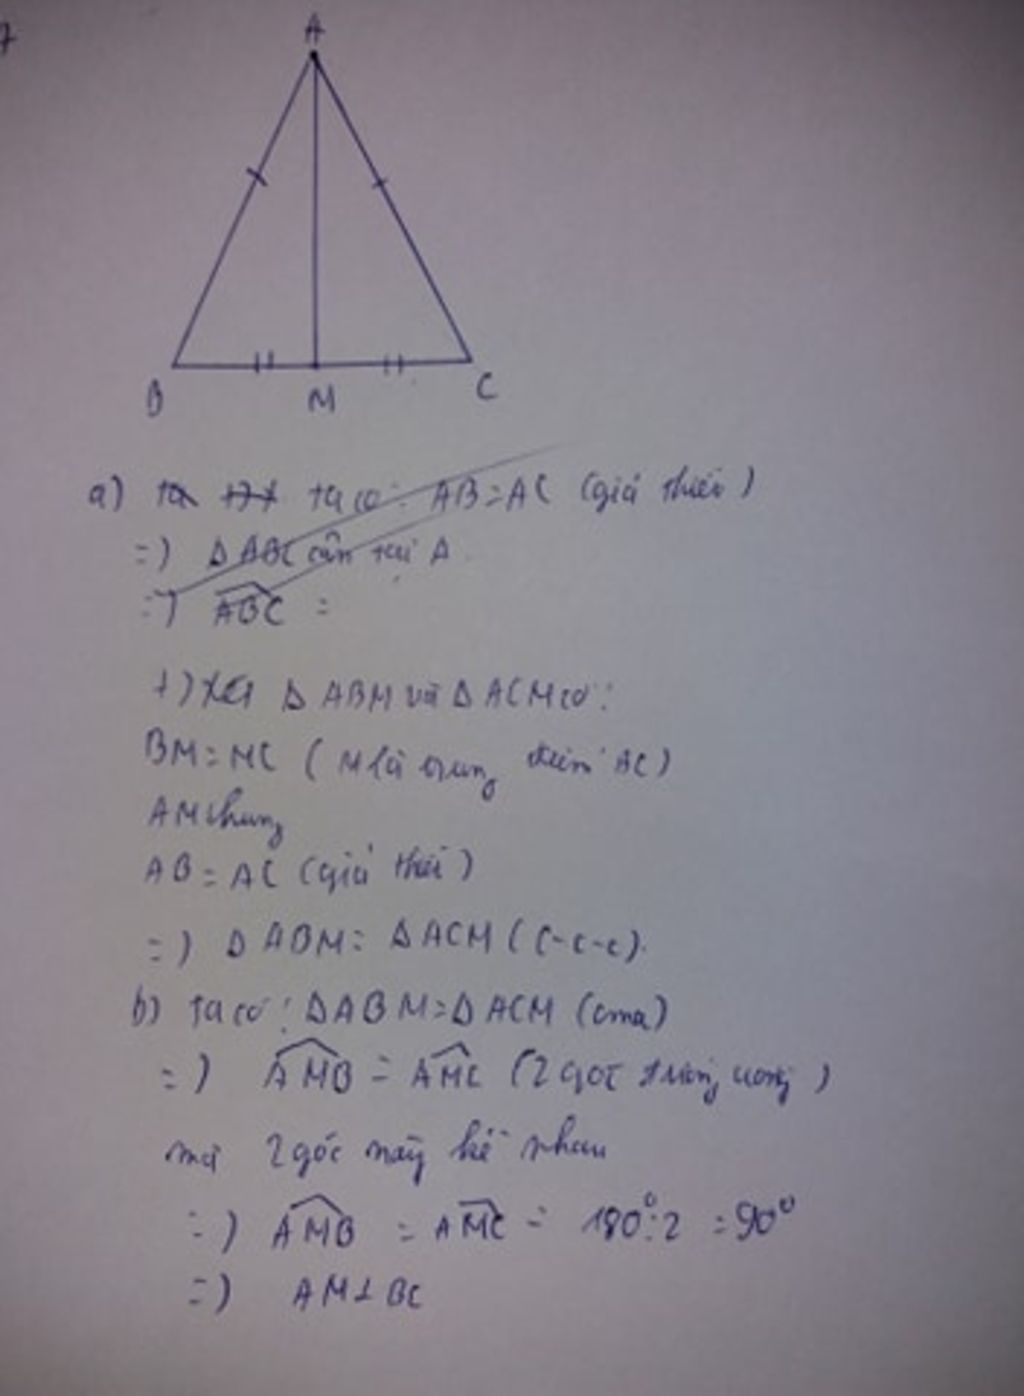 7
A
B M C
a) ta +) x ta có: AB = AC (giả thiết)
=) Δ ABC cân tại A
=) ABC =
+) Xét Δ ABM và Δ ACM có:
BM = MC ( M là trung điểm BC)
AM chung
AB = AC (giả thiết)
=) Δ ABM = Δ ACM (c-c-c).
b) Ta có: Δ ABM = Δ ACM (cma)
=) AMB = AMC (2 góc tương ứng)
mà 2 góc này kề nhau
=) AMB = AMC = 180° : 2 = 90°
=) AM ⊥ BC